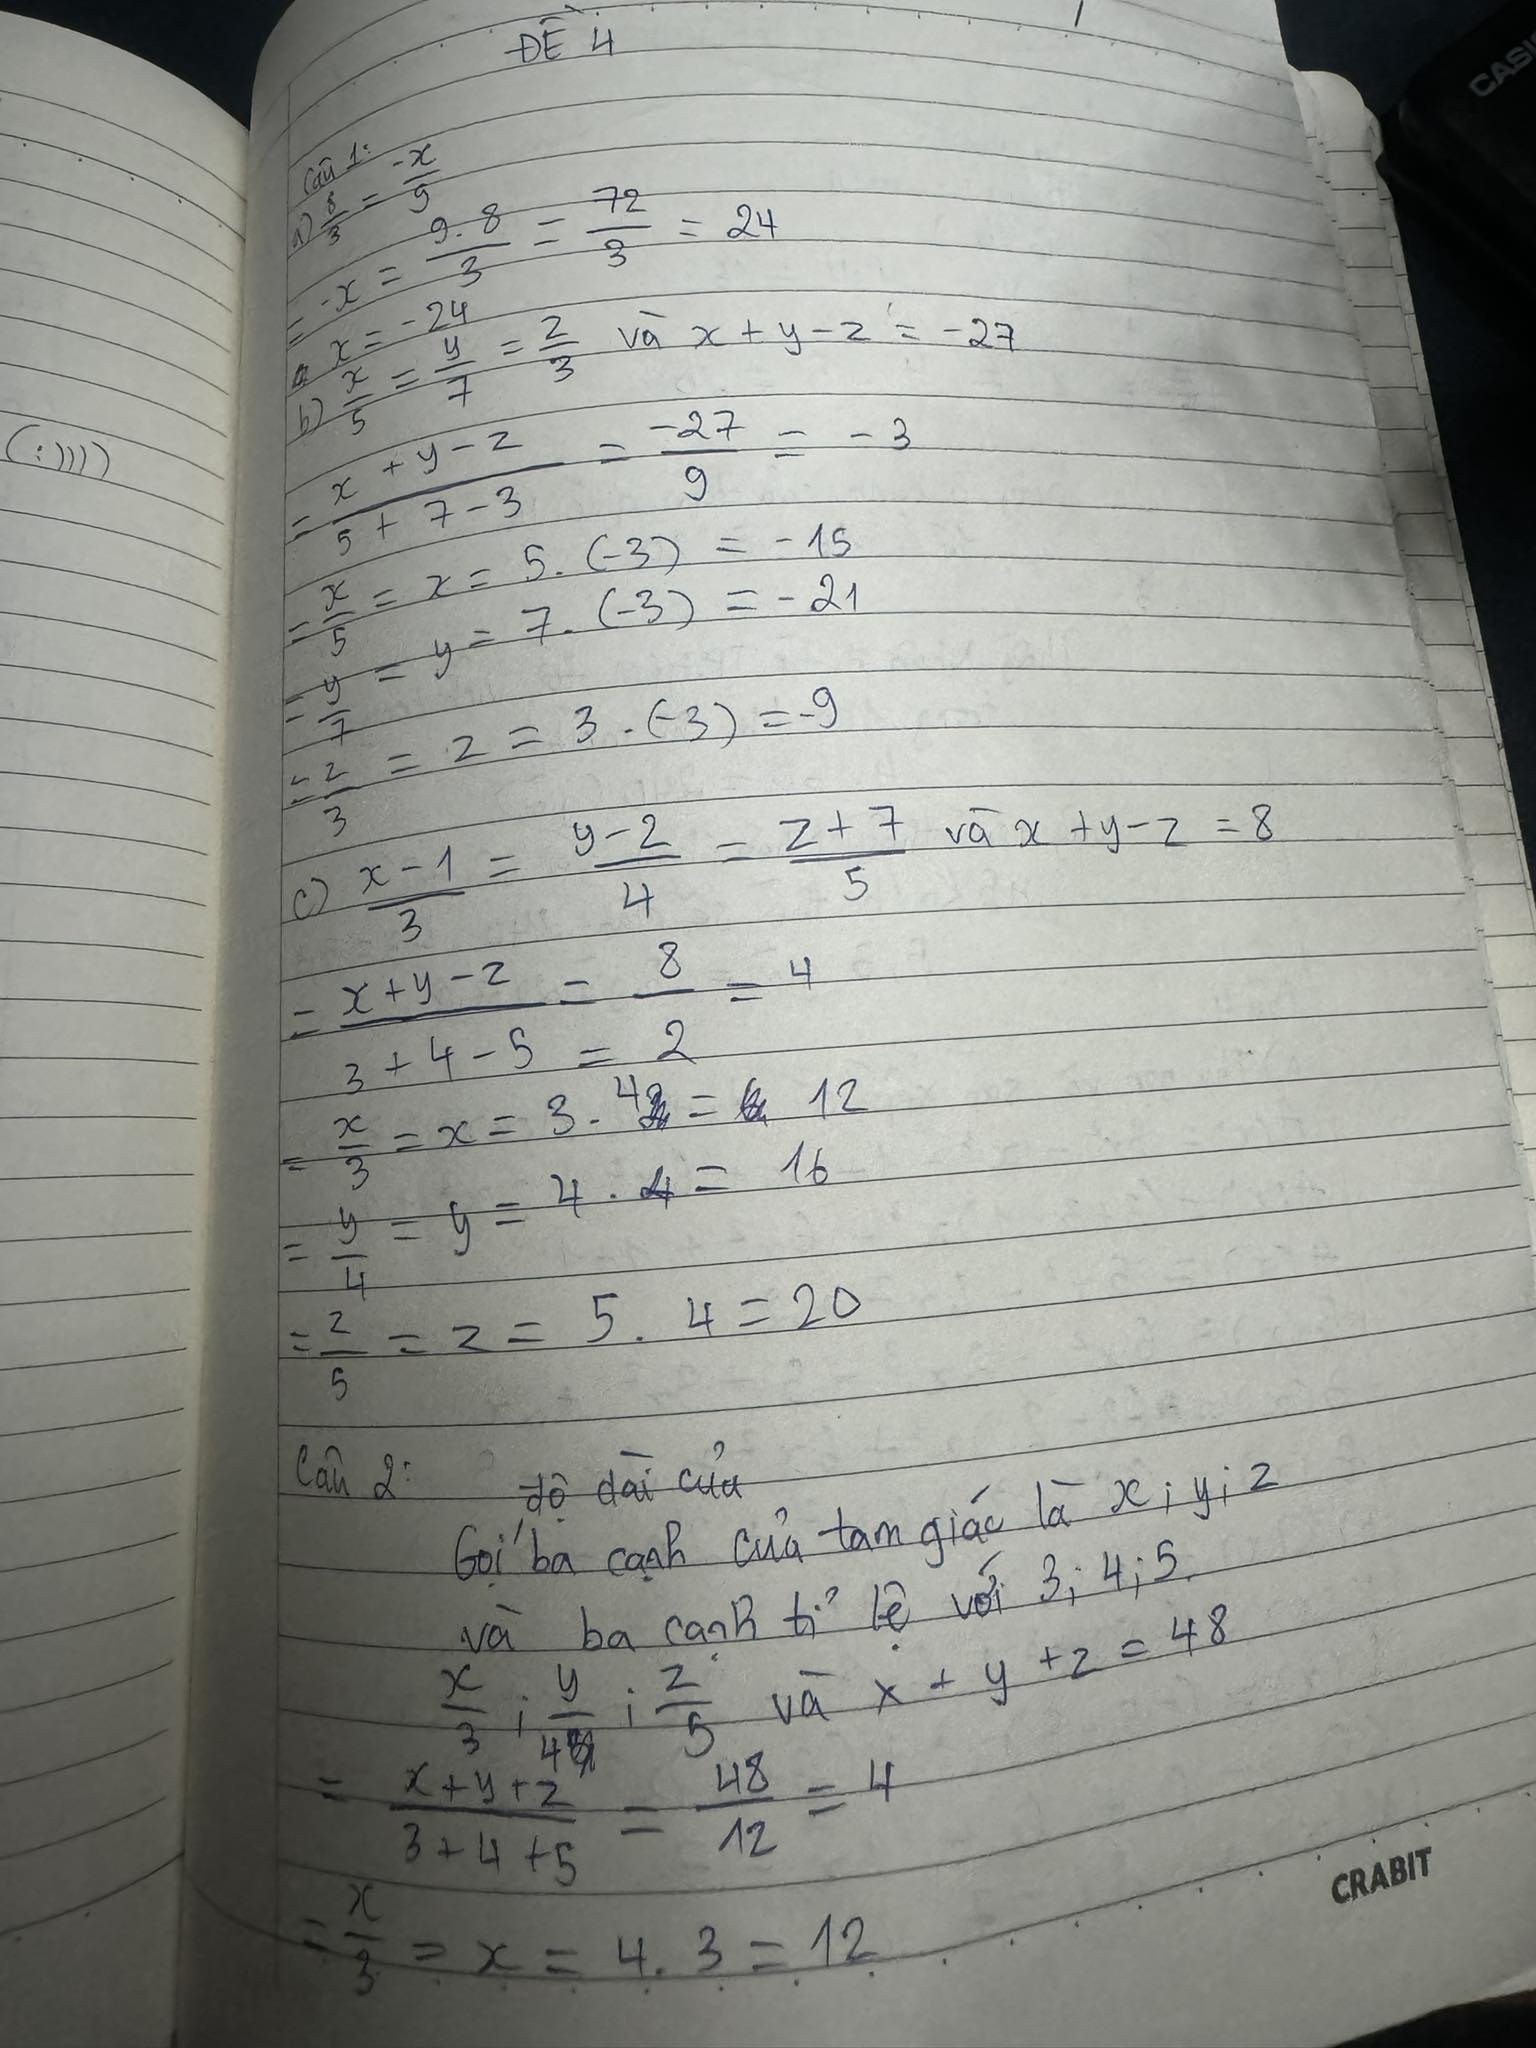 ĐỀ 4
CASI
Câu 1:
a) 8/3 = -x/9
= -x = 9.8/3 = 72/3 = 24
x = -24
b) x/5 = y/7 = z/3 và x + y - z = -27
= x + y - z / 5 + 7 - 3 = -27/9 = -3
= x/5 = x = 5. (-3) = -15
= y/7 = y = 7. (-3) = -21
= z/3 = z = 3 . (-3) = -9
c) x - 1/3 = y - 2/4 = z + 7/5 và x + y - z = 8
= x + y - z / 3 + 4 - 5 = 8/2 = 4
= x/3 = x = 3 . 4 = 12
= y/4 = y = 4 . 4 = 16
= z/5 = z = 5 . 4 = 20
Câu 2: độ dài của
Gọi ba cạnh của tam giác là x; y; z
và ba cạnh tỉ lệ với 3; 4; 5.
x/3 ; y/4 ; z/5 và x + y + z = 48
= x + y + z / 3 + 4 + 5 = 48/12 = 4
= x/3 = x = 4. 3 = 12
(:)))
CRABIT